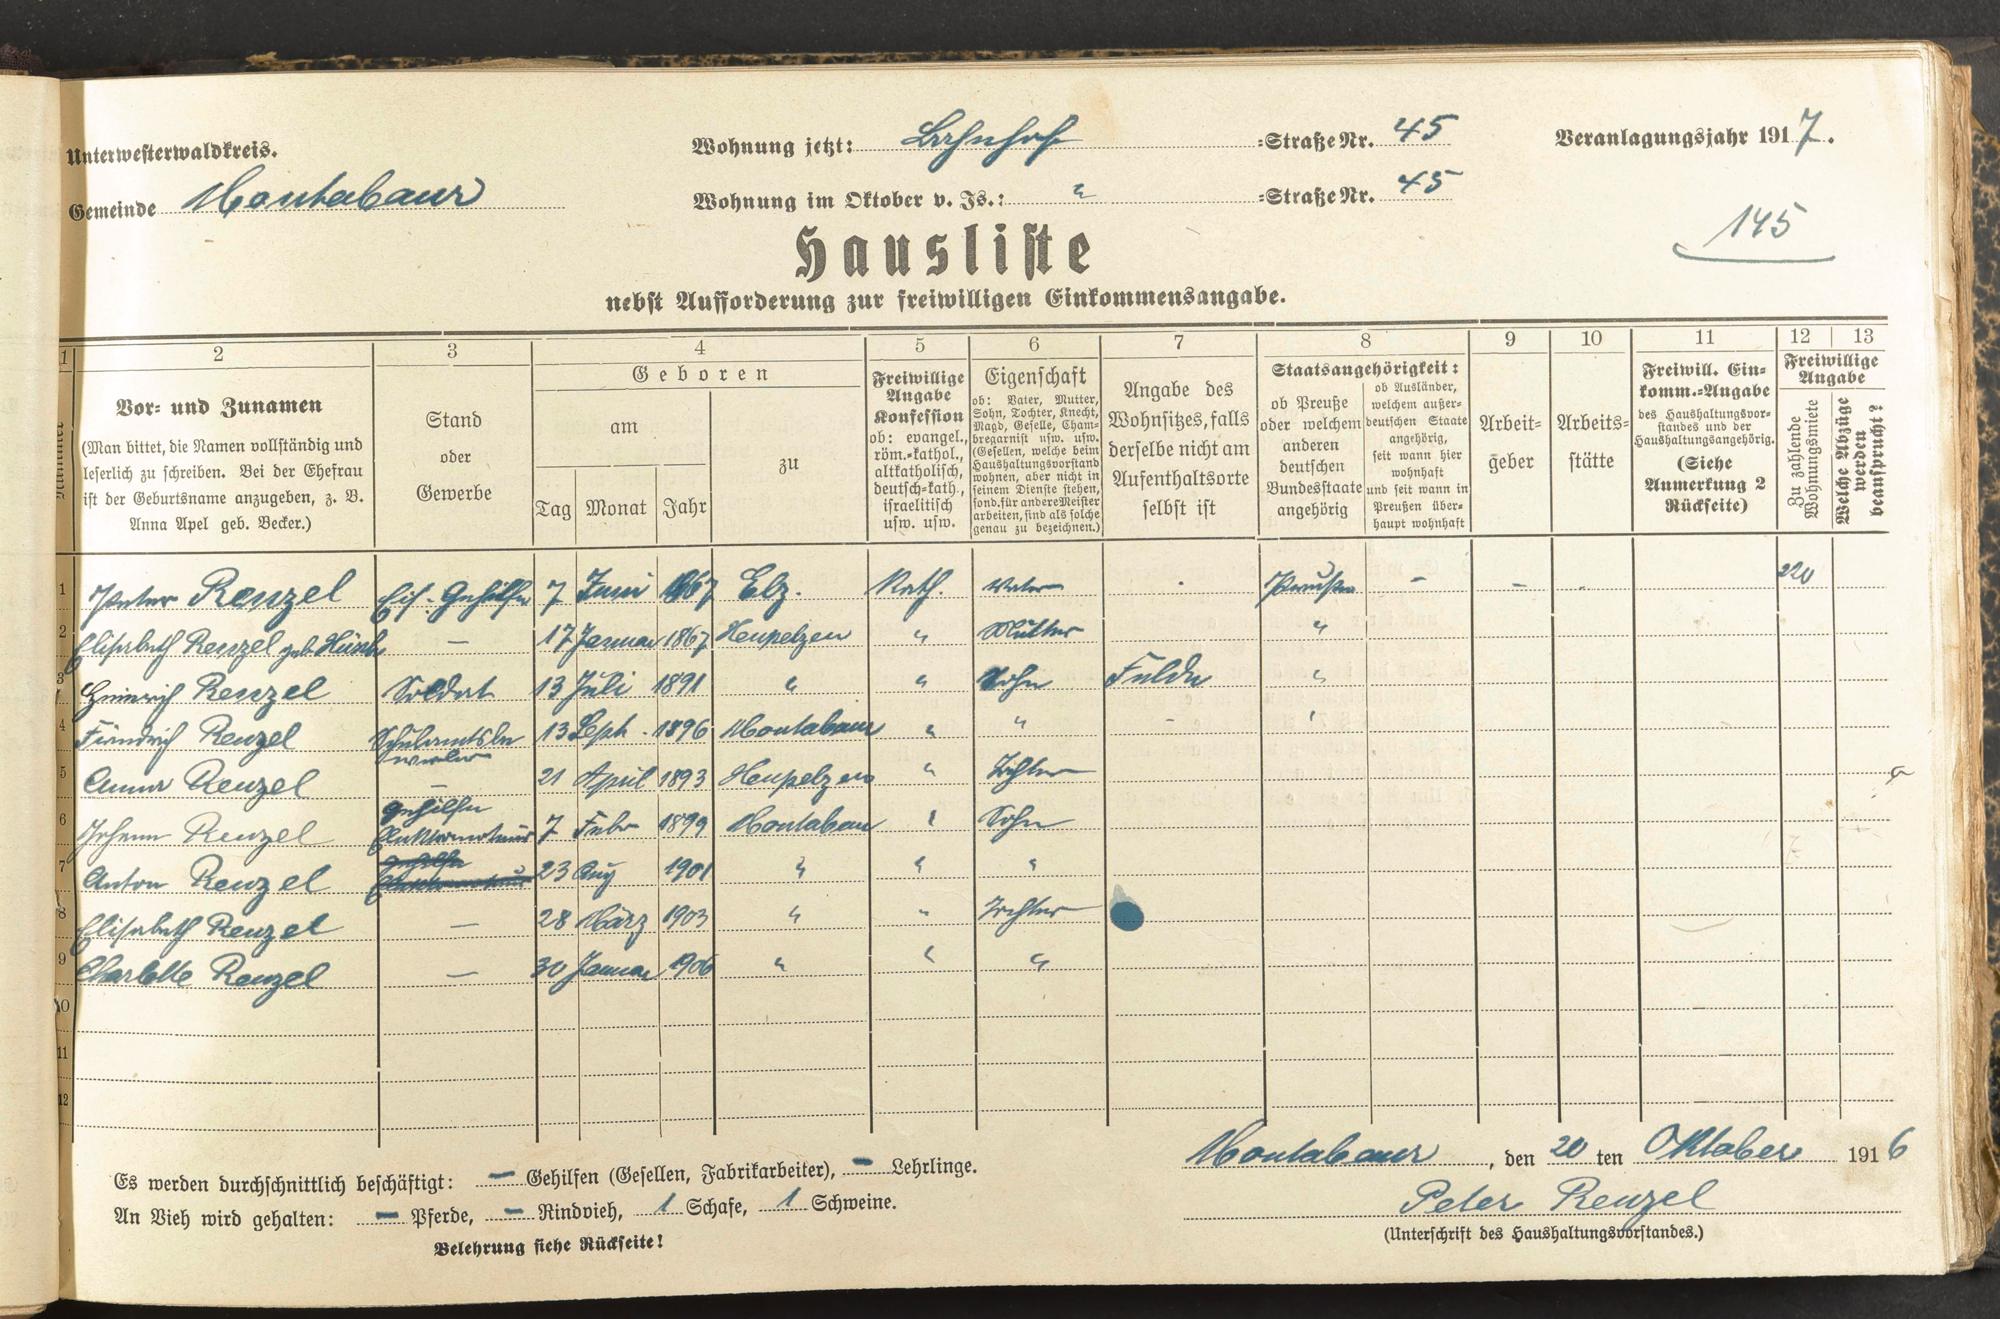 Unterwesterwaldkreis.
Gemeinde Montabaur
Wohnung jetzt: Bahnhof =Straße Nr. 45
Wohnung im Oktober v. Js.: " =Straße Nr. 45
Veranlagungsjahr 1917.
145
Hausliste
nebst Aufforderung zur freiwilligen Einkommensangabe.
1 2 3 4 5 6 7 8 9 10 11 12 13
Nummer
Vor- und Zunamen
(Man bittet, die Namen vollständig und
leserlich zu schreiben. Bei der Ehefrau
ist der Geburtsname anzugeben, z. B.
Anna Apel geb. Becker.)
Stand
oder
Gewerbe
Geboren
am
Tag Monat Jahr
zu
Freiwillige
Angabe
Konfession
ob: evangel.,
röm.-kathol.,
altkatholisch,
deutsch-kath.,
israelitisch
usw. usw.
Eigenschaft
ob: Vater, Mutter,
Sohn, Tochter, Knecht,
Magd, Geselle, Cham-
bregarnist usw. usw.
(Gesellen, welche beim
Haushaltungsvorstand
wohnen, aber nicht in
seinem Dienste stehen,
sond. für andere Meister
arbeiten, sind als solche
genau zu bezeichnen.)
Angabe des
Wohnsitzes, falls
derselbe nicht am
Aufenthaltsorte
selbst ist
Staatsangehörigkeit:
ob Preuße
oder welchem
anderen
deutschen
Bundesstaate
angehörig
ob Ausländer,
welchem außer-
deutschen Staate
angehörig,
seit wann hier
wohnhaft
und seit wann in
Preußen über-
haupt wohnhaft
Arbeit-
geber
Arbeits-
stätte
Freiwill. Ein-
komm.-Angabe
des Haushaltungsvor-
standes und der
Haushaltungsangehörig.
(Siehe
Anmerkung 2
Rückseite)
Freiwillige
Angabe
Zu zahlende
Wohnungsmiete
Welche Abzüge
werden
beansprucht?
1 Peter Renzel Eis. Gehilfe 7 Juni 1867 Elz. Kath. Vater - Preußen - - - 220
2 Elisabeth Renzel geb. — 17 Januar 1867 Heupelzen " Mutter "
3 Heinrich Renzel Soldat 13 Juli 1891 " " Sohn Fulda "
4 Friedrich Renzel 13 Sept. 1896 Montabaur " " - "
5 Anna Renzel — 21 April 1893 Heupelzen " Tochter
6 Johann Renzel Gehilfe 7 Febr 1899 Montabaur " Sohn
7 Anton Renzel 23 Aug 1901 " " "
8 Elisabeth Renzel — 28 März 1903 " " Tochter
9 Charlotte Renzel — 30 Januar 1906 " " "
10
11
12
Es werden durchschnittlich beschäftigt: — Gehilfen (Gesellen, Fabrikarbeiter), — Lehrlinge.
An Vieh wird gehalten: — Pferde, — Rindvieh, 1 Schafe, 1 Schweine.
Belehrung siehe Rückseite!
Montabaur, den 20 ten Oktober 1916
Peter Renzel
(Unterschrift des Haushaltungsvorstandes.)